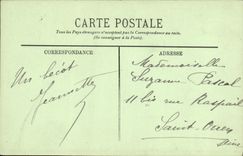 CARTE POSTALE
Tous les Pays étrangers n'acceptent pas la Correspondance au recto.
(Se renseigner à la Poste)
CORRESPONDANCE
ADRESSE
Un bécot
Jeannette
Mademoiselle
Suzanne Pascal
11 bis rue Raspail
Saint-Ouen
Seine